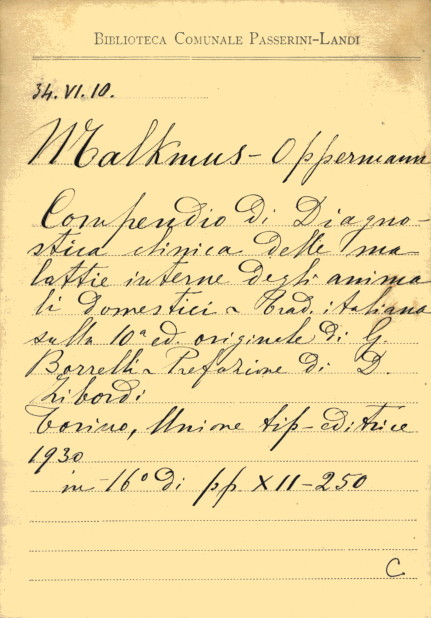 BIBLIOTECA COMUNALE PASSERINI-LANDI
34.VI.10.
Malkmus - Oppermann
Compendio di Diagno-
stica clinica delle ma
lattie interne degli anima
li domestici - Trad. italiana
sulla 10ª ed. originale di G.
Borrelli - Prefazione di D.
Zibordi
Torino, Unione tip-editrice
1930
in-16° di pp XII-250
C